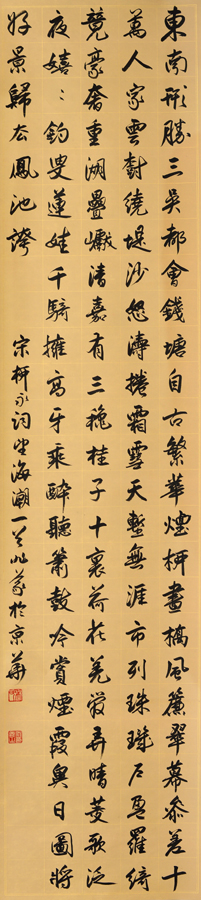 東南形勝三吳都會錢塘自古繁華煙柳畫橋風簾翠幕參差十
萬人家雲樹繞堤沙怒濤捲霜雪天塹無涯市列珠璣戶盈羅綺
競豪奢重湖疊巘清嘉有三穐桂子十裏荷花羌管弄晴菱歌泛
夜嬉〻釣叟蓮娃千騎擁高牙乘醉聽簫鼓吟賞煙霞異日圖將
好景歸去鳳池誇
宋柳永词望海潮一首於京華